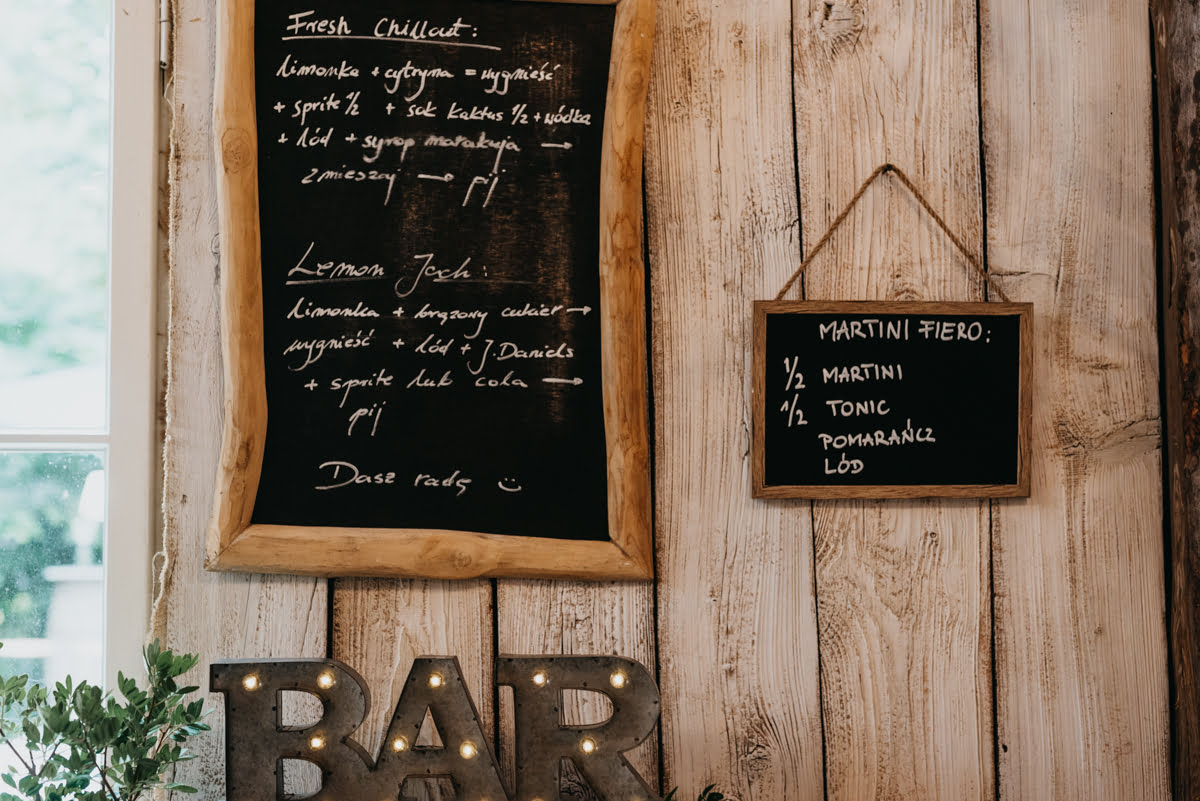 Fresh Chillout:
limonka + cytryma = wygnieść
+ sprite 1/2 + sok kaktus 1/2 + wódka
+ lód + syrop marakuja →
zmieszaj → pij
Lemon Jack:
limonka + brązowy cukier →
wygnieść + lód + J.Daniels
+ sprite lub cola →
pij
Dasz radę ☺
MARTINI FIERO:
1/2 MARTINI
1/2 TONIC
POMARAŃCZ
LÓD
BAR